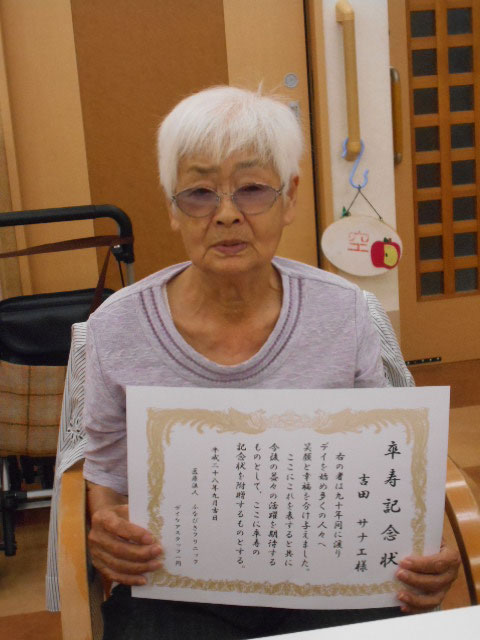 卒寿記念状
吉田 サナエ様
右の者は九十年間に渡り
デイを始め多くの人々へ
笑顔と幸福を分け与えました。
ここにこれを表すると共に
今後の益々の活躍を期待する
ものとして、ここに卒寿の
記念状を附贈するものとする。
平成二十八年九月吉日
医療法人 ふるびきクリニック
デイケアスタッフ一同
空